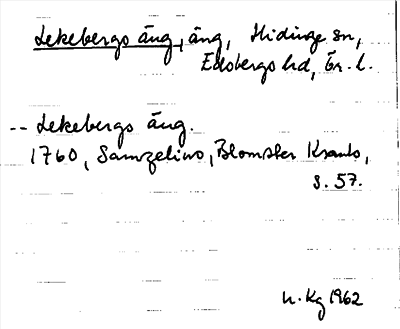 Lekebergs äng, äng, Hidinge sn,
Edsbergs hd, Ör. l.
-- Lekebergs äng.
1760, Samzelius, Blomster Krants,
s. 57.
1962